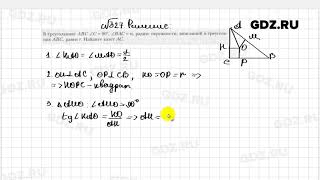 №327 Решение
GDZ.RU
В треугольнике ABC ∠C = 90°, ∠BAC = α, радиус окружности, вписанной в треуголь-
ник ABC, равен r. Найдите катет AC.
A
M
K
O
C
P
B
1. ∠KAO = ∠MAO = α/2
2. OK⊥AC, OP⊥CB, KO=OP=r =>
=> KOPC – квадрат
3. ∠AKO = 90°
tg∠KAO = KO/AK => AK =
GDZ.RU